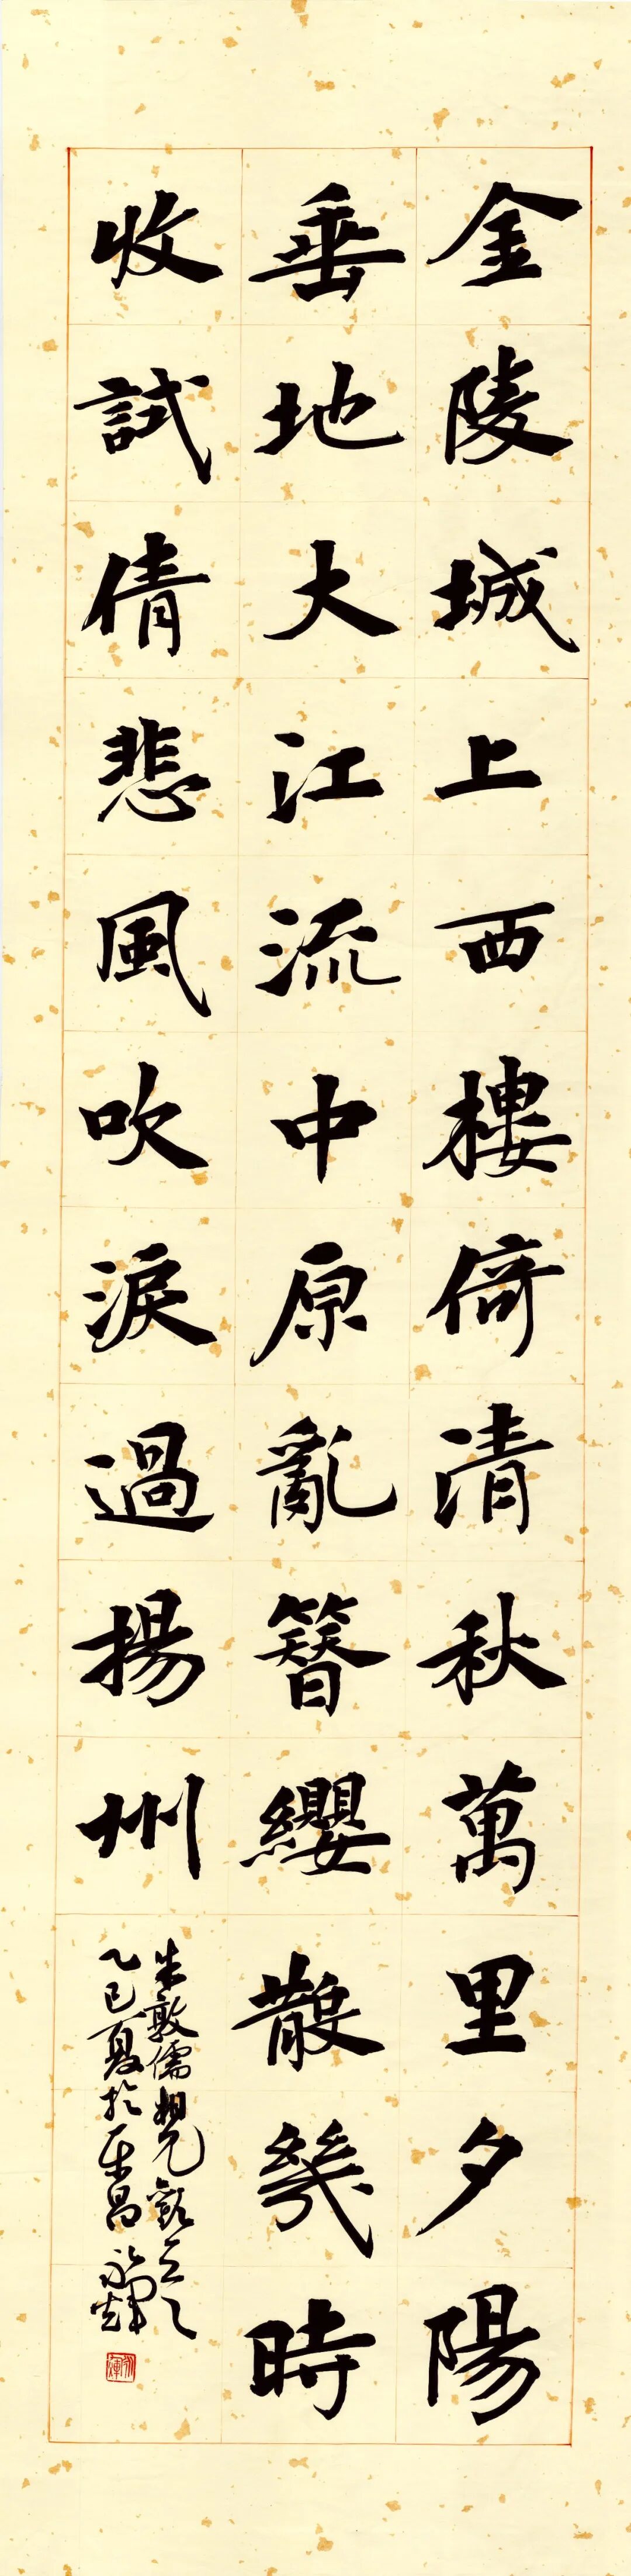 金陵城上西樓倚清秋萬里夕陽
垂地大江流中原亂簪纓散幾時
收試倩悲風吹淚過揚州
朱敦儒相見歡之一
乙巳夏於平昌永輝